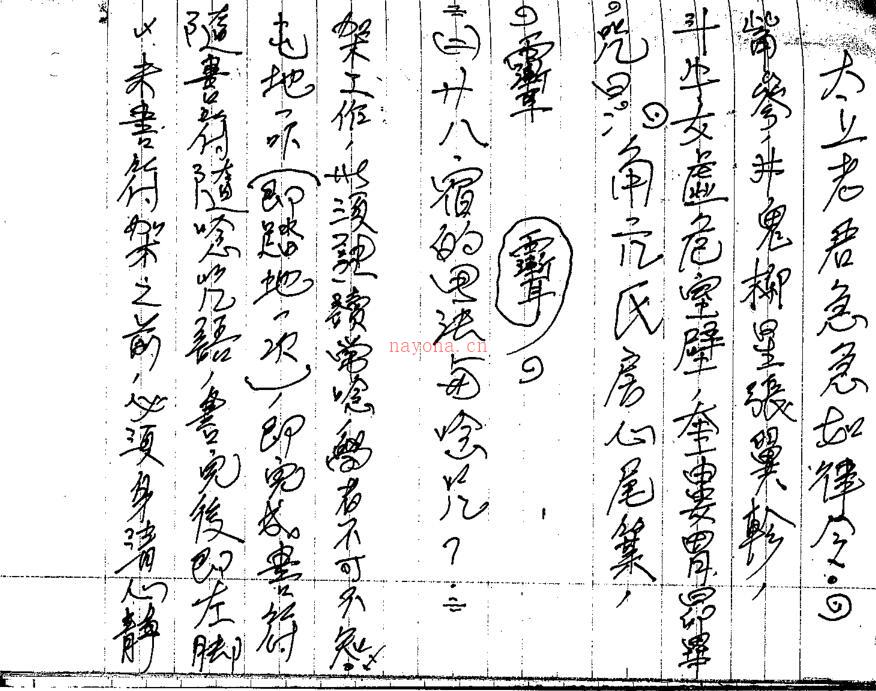 4.未書符架之前,必須身清心靜
隨書符隨唸咒語,書完後即左脚
地一次(即踏地一次),即完成書符
架工作,此須連續常唸,學者不可不知。
=(二)廿八宿的用法每唸咒?=
咒曰:角亢氐房心尾箕,
斗牛女虛危室壁,奎婁胃昴畢
觜參,井鬼柳星張翼軫,
太上老君急急如律令。
nayona.cn